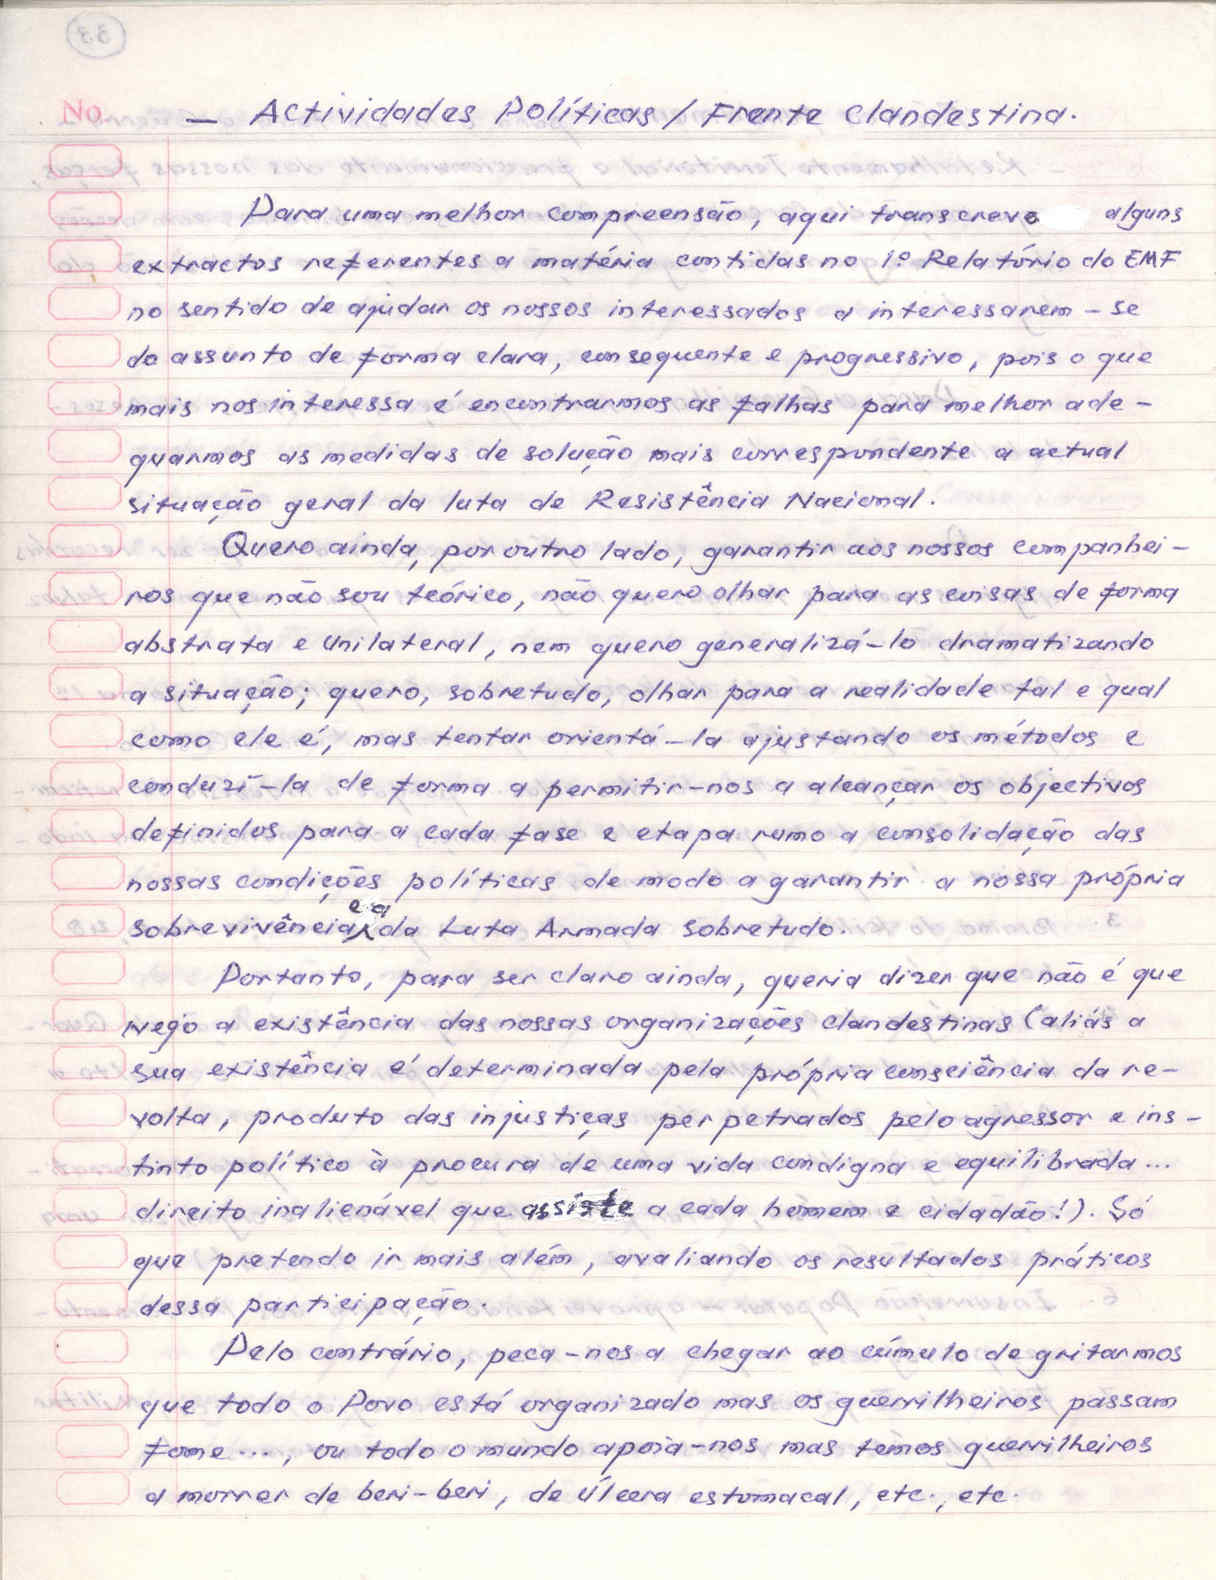 33
No.
— Actividades Políticas / Frente Clandestina.
Para uma melhor compreensão, aqui transcrevo alguns
extractos referentes a matéria contidas no 1º Relatório do EMF
no sentido de ajudar os nossos interessados a interessarem-se
do assunto de forma clara, consequente e progressivo, pois o que
mais nos interessa é encontrarmos as falhas para melhor ade-
quarmos as medidas de solução mais correspondente a actual
situação geral da luta de Resistência Nacional.
Quero ainda, por outro lado, garantir aos nossos companhei-
ros que não sou teórico, não quero olhar para as coisas de forma
abstrata e unilateral, nem quero generalizá-lo dramatizando
a situação; quero, sobretudo, olhar para a realidade tal e qual
como ele é, mas tentar orientá-la ajustando os métodos e
conduzí-la de forma a permitir-nos a alcançar os objectivos
definidos para a cada fase e etapa rumo a consolidação das
nossas condições políticas de modo a garantir a nossa própria
sobrevivência e a da Luta Armada sobretudo.
Portanto, para ser claro ainda, queria dizer que não é que
nego a existência das nossas organizações clandestinas (aliás a
sua existência é determinada pela própria consciência da re-
volta, produto das injustiças perpetrados pelo agressor e ins-
tinto político à procura de uma vida condigna e equilibrada...
direito inalienável que assiste a cada homem e cidadão!). Só
que pretendo ir mais além, avaliando os resultados práticos
dessa participação.
Pelo contrário, peca-nos a chegar ao cúmulo de gritarmos
que todo o Povo está organizado mas os guerrilheiros passam
fome..., ou todo o mundo apoia-nos mas temos guerrilheiros
a morrer de beri-beri, de úlcera estomacal, etc., etc.